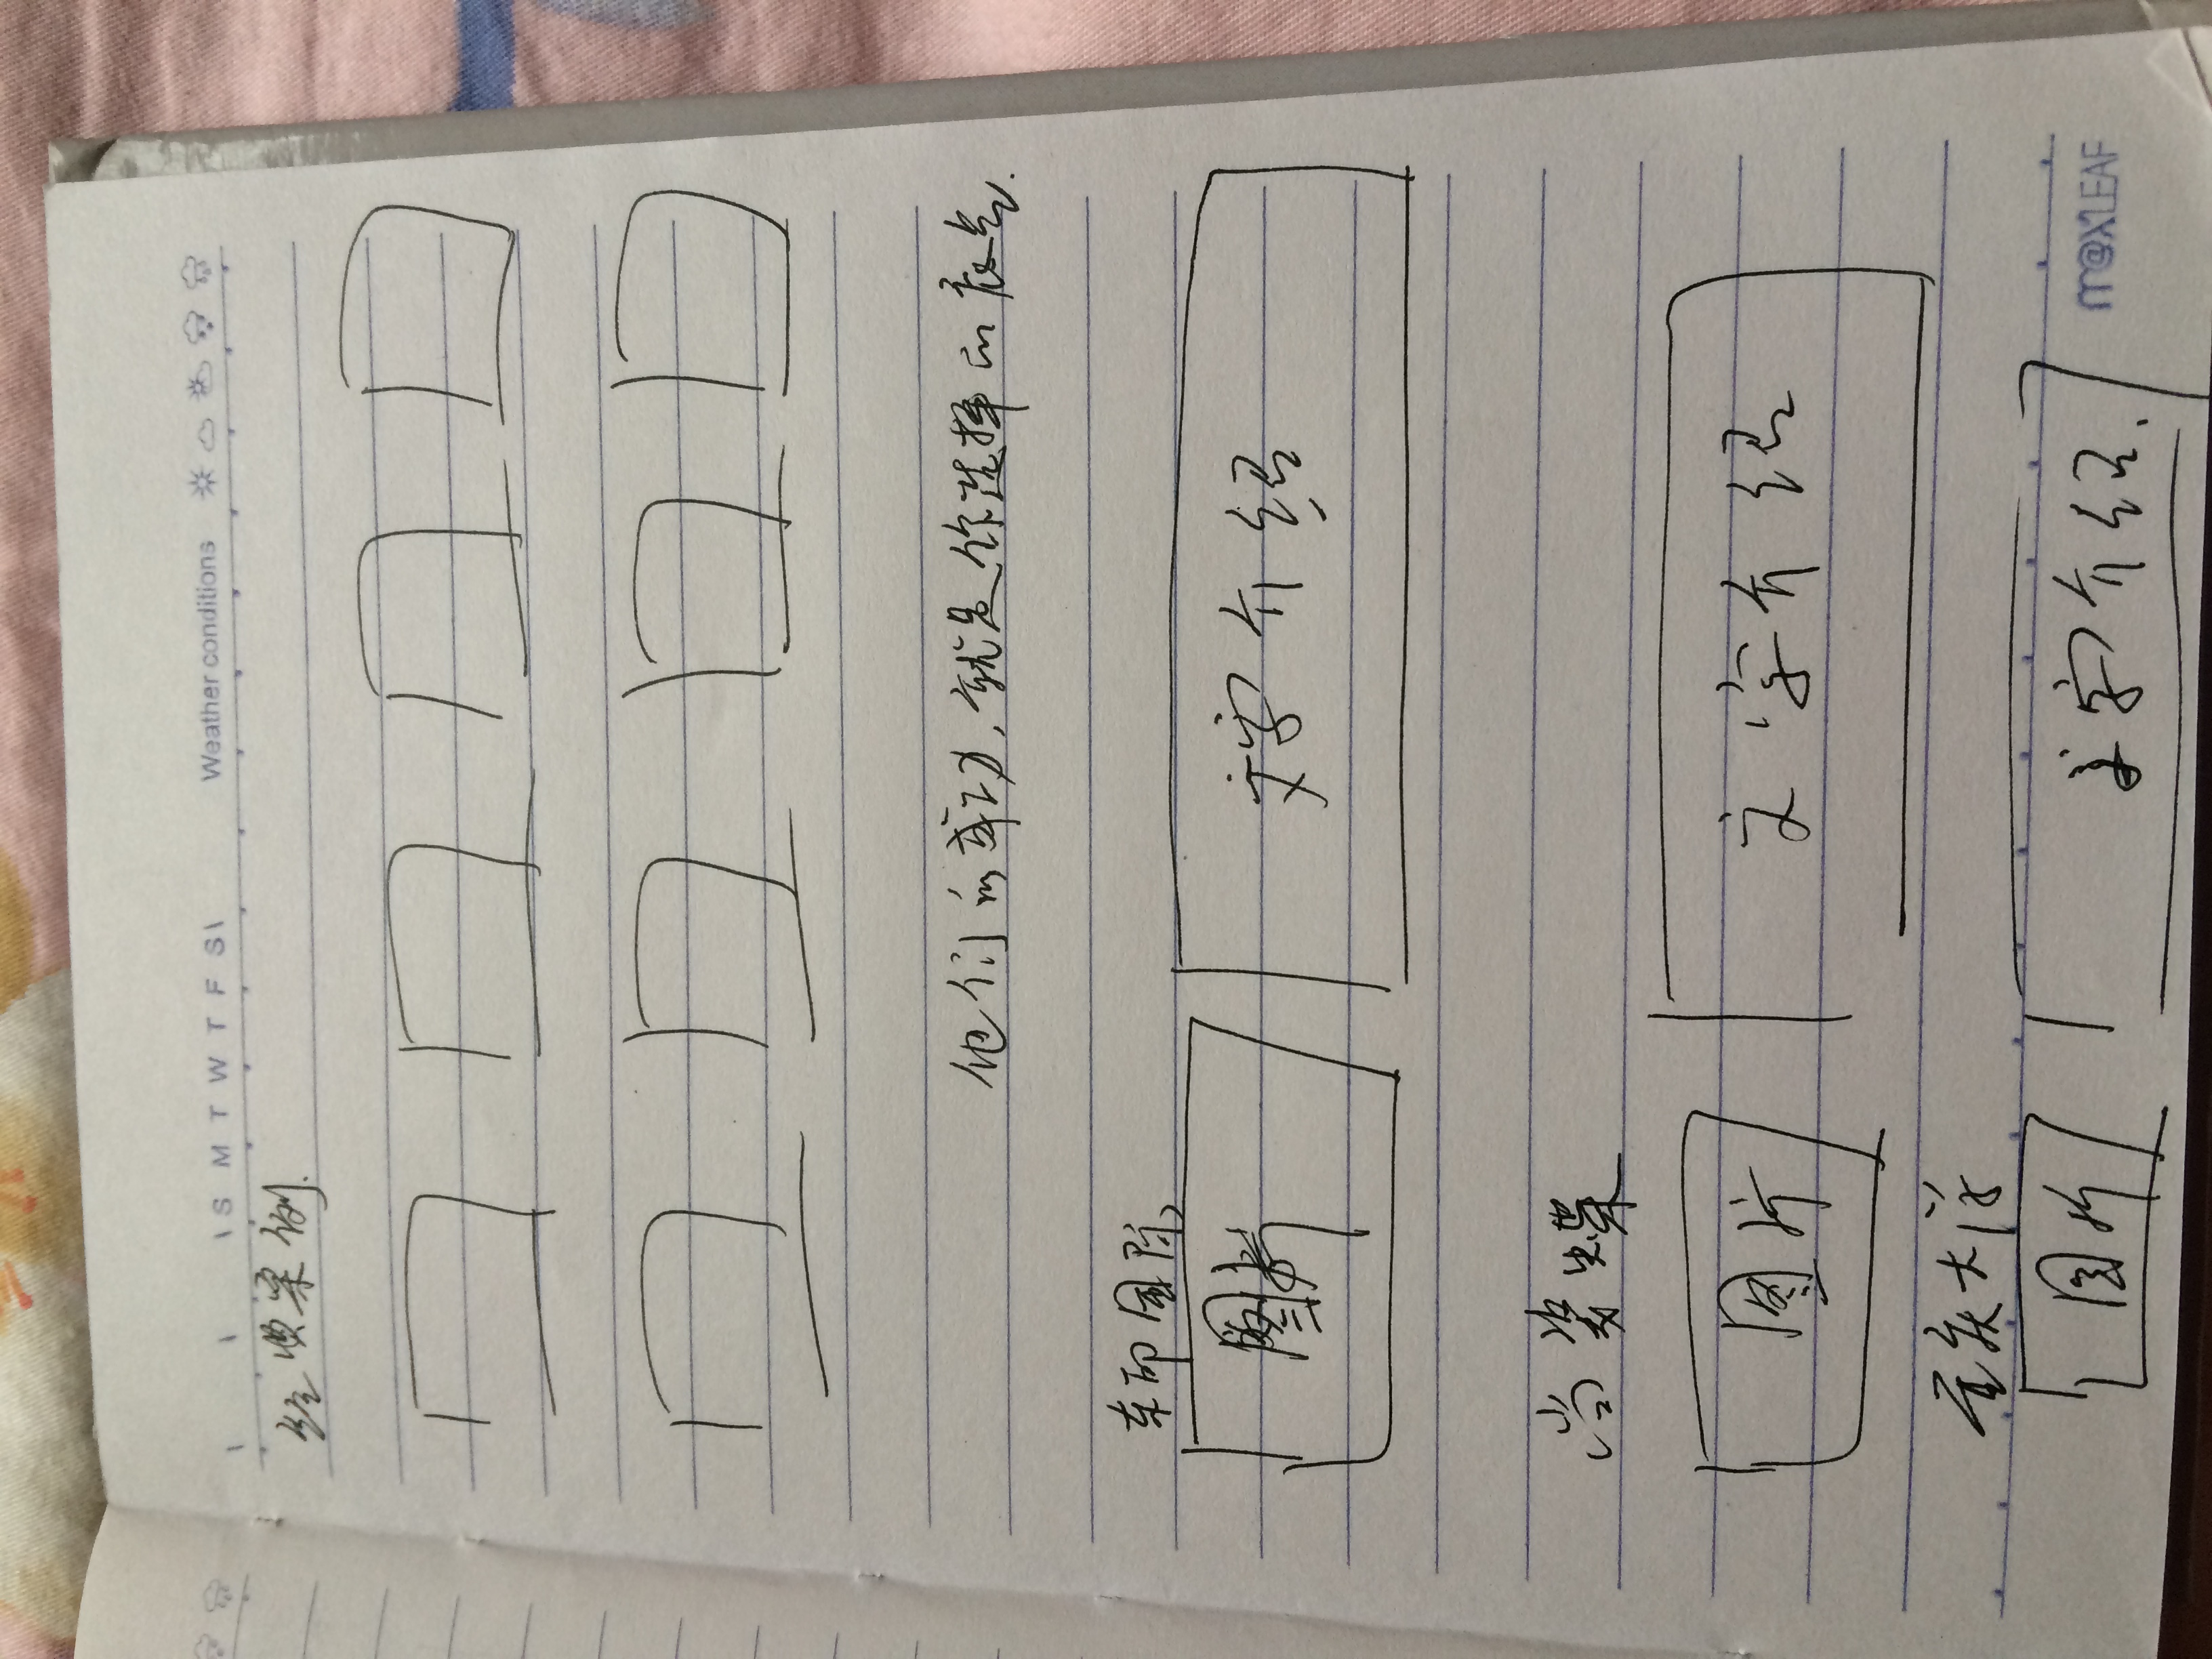 S M T W T F S Weather conditions
经典案例.
他们的成功,就是你选择的底气.
东印国际
图片 文字介绍
尚姿蝶
图片 文字介绍
重庆大学
图片 文字介绍.
m@xLEAF